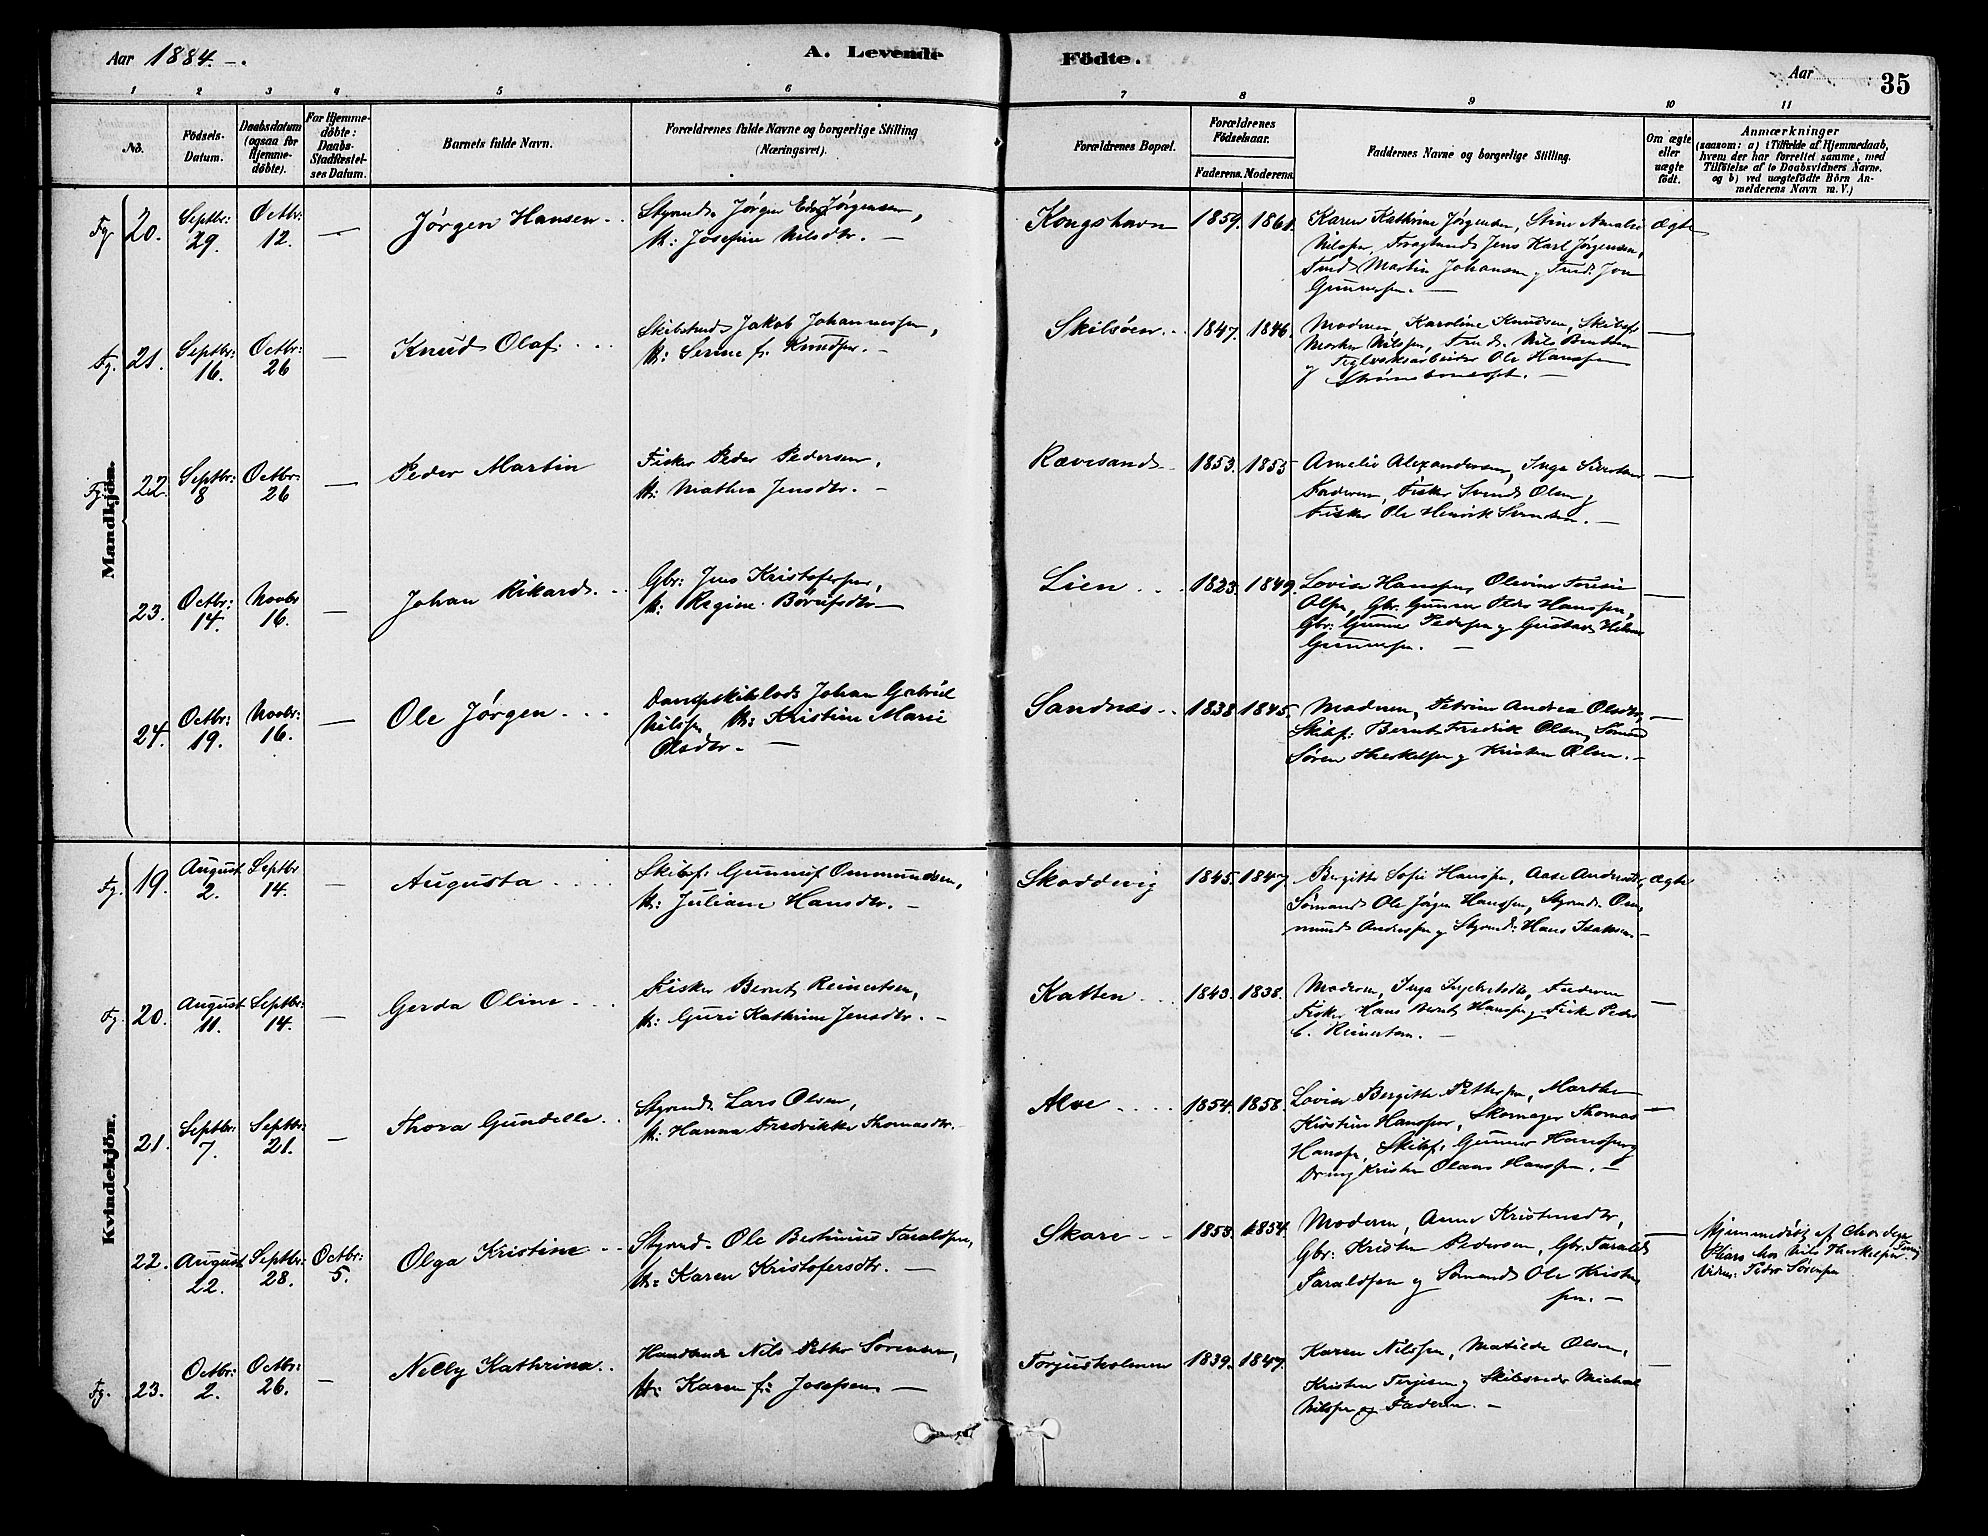 Aar 1884.
A. Levende Födte.
Aar
35
1 2 3 4 5 6 7 8 9 10 11
No.
Födsels-Datum.
Daabsdatum (ogsaa for Hjemme-döbte).
For Hjemme-döbte: Daabs-Stadfæstel-ses Datum.
Barnets fulde Navn.
Forældrenes fulde Navne og borgerlige Stilling (Næringsvei).
Forældrenes Bopæl.
Forældrenes Födselsaar.
Faderens. Moderens.
Faddernes Navne og borgerlige Stilling.
Om ægte eller uægte födt.
Anmærkninger
(saasom: a) i Tilfælde af Hjemmedaab, hvem der har forrettet samme, med Tilföielse af to Daabsvidners Navne. og b) ved uægtefödte Börn Anmelderens Navn m. V.)
Mandkjön.
Fg. 20. Septbr: 29. Octbr: 12. — Jørgen Hansen Styrmd. Jørgen Edv. Jørgensen,
K: Josefine Nilsdtr. —
Kongshavn 1859. 1861. Karen Kathrine Jørgensen, Stine Amalie
Nilsen, Jens Karl Jørgensen,
Martin Johansen
Gunnersen. —
Ægte
Fg. 21. Septbr: 16. Octbr: 26 — Knud Olaf. Jakob Johannessen,
K: Serine f. Knudsen. —
Skilsøen 1847. 1846. Moderen, Karoline Knudsen, Skibsf.
Nilsen, Nils
Teglverksarbeider Ole Hansen
—
Fg. 22. Septbr: 8 Octbr: 26 — Peder Martin Fisker Peder Pedersen,
K: Mathea Jensdtr. —
Rævesand 1853. 1855 Amelie Alexandersen, Inga
Faderen, Fisker Svend Olsen og
Fisker Ole Henrik Svendsen. —
23. Octbr: 14. Novbr 16. — Johan Rikard. Gbr: Jens Kristofersen,
K: Regine —
Lien 1823. 1849. Lovise Hanssen, Olevine
Olsen, Gbr. Gunner Peder Hanssen,
Gbr: Gunner Pedersen og Gustav
Gunnersen. —
24. Octbr: 19. Novbr: 16. — Ole Jørgen Johan Gabriel
Nilsen K: Kristine Marie
Olsdtr. —
Sandnæs 1838 1845. Moderen, Petrine Andrea Olsdtr,
Skibsf: Bernt Fredrik Olsen, Sømand
Søren Therkelsen og Kristen Olsen. —
Kvindekjön.
Fg. 19. August 2. Septbr 14. — Augusta Skibsf: Gunnuf Ommundsen,
K: Juliane Hansdtr. —
Skoddevig 1845. 1847. Bergitte Sofie Hanssen, Aase Andersdtr,
Sømand Ole Jørgen Hanssen, Styrmd. Om-
mund Anderssen og Styrmd: Hans Isaksen. —
ægte
Fg. 20. August 11. Septbr: 14. — Gerda Oline Fisker Bernt Reinertsen,
K: Guri Kathrine Jensdtr. —
Katten 1843. 1838. Moderen, Inga Faderen
Fisker Hans Bernt Hanssen og Fisker Peder
C. Reinertsen. —
21. Septbr: 7. Septbr: 21. — Thora Gundelle Styrmd. Lars Olsen,
K: Hanna Fredrikke Thomasdtr.
Alve 1854. 1858. Lovise Bergitte Pettersen, Marthe
Kirstine Hanssen, Skomager Thomas
Hanssen, Skibsf: Gunner Hanssen og
Kristen Olaus Hanssen. —
22. August 22. Septbr: 28. Octbr: 5. Olga Kristine Styrmd. Ole Bertinius Taraldsen,
K: Karen Kristofersdtr. —
Skare 1853. 1854. Moderen, Anne Kristensdtr,
Gbr: Kristen Pedersen, Gbr. Tarald
Taraldsen og Sømand Ole Kristen
sen. —
Hjemmedøbt af
Nils Therkelsen.
Vidne: Peder Sørensen
Fg. 23. Octbr: 2. Octbr: 26. — Nelly Kathrina Nils Petter Sørensen,
K: Karen f: Josefsen. —
Torjusholmen 1839. 1847. Karen Nilssen, Matilde Olsen,
Kristen Terjesen og Michael
Nilssen og Faderen. —